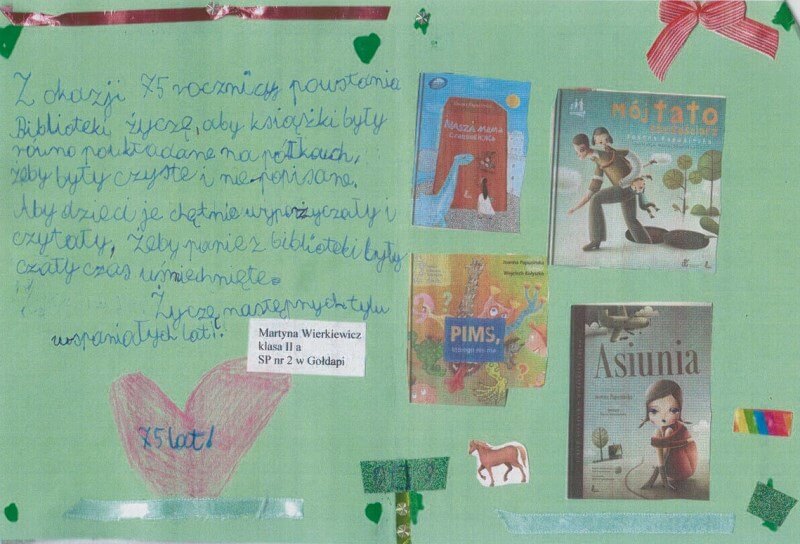 Z okazji 75 rocznicy powstania
Biblioteki życzę, aby książki były
równo poukładane na półkach,
żeby były czyste i nie popisane.
Aby dzieci je chętnie wypożyczały i
czytały, żeby panie z biblioteki były
cały czas uśmiechnięte.
Życzę następnych tylu
wspaniałych lat!
Martyna Wierkiewicz
klasa II a
SP nr 2 w Gołdapi
75 lat!
NASZA MAMA
CZARODZIEJKA
MÓJ TATO
SZCZĘŚCIARZ
Joanna Papuzińska
Wojciech Kołyszko
PIMS,
którego nie ma
Asiunia
Joanna Papuzińska